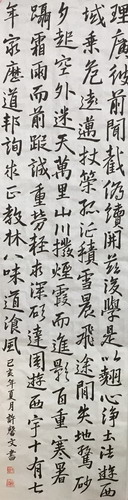 理廣彼前聞截偽續真開茲後學是以翹心淨土法遊西
域乘危遠邁杖策孤征積雪晨飛途間失地驚砂
夕起空外迷天萬里山川撥煙霞而進影百重寒暑
躡霜雨而前蹤誠重勞輕求深願達周遊西宇十有七
年窮歷道邦詢求正教林八味道飡風
己亥年夏月許譽文書